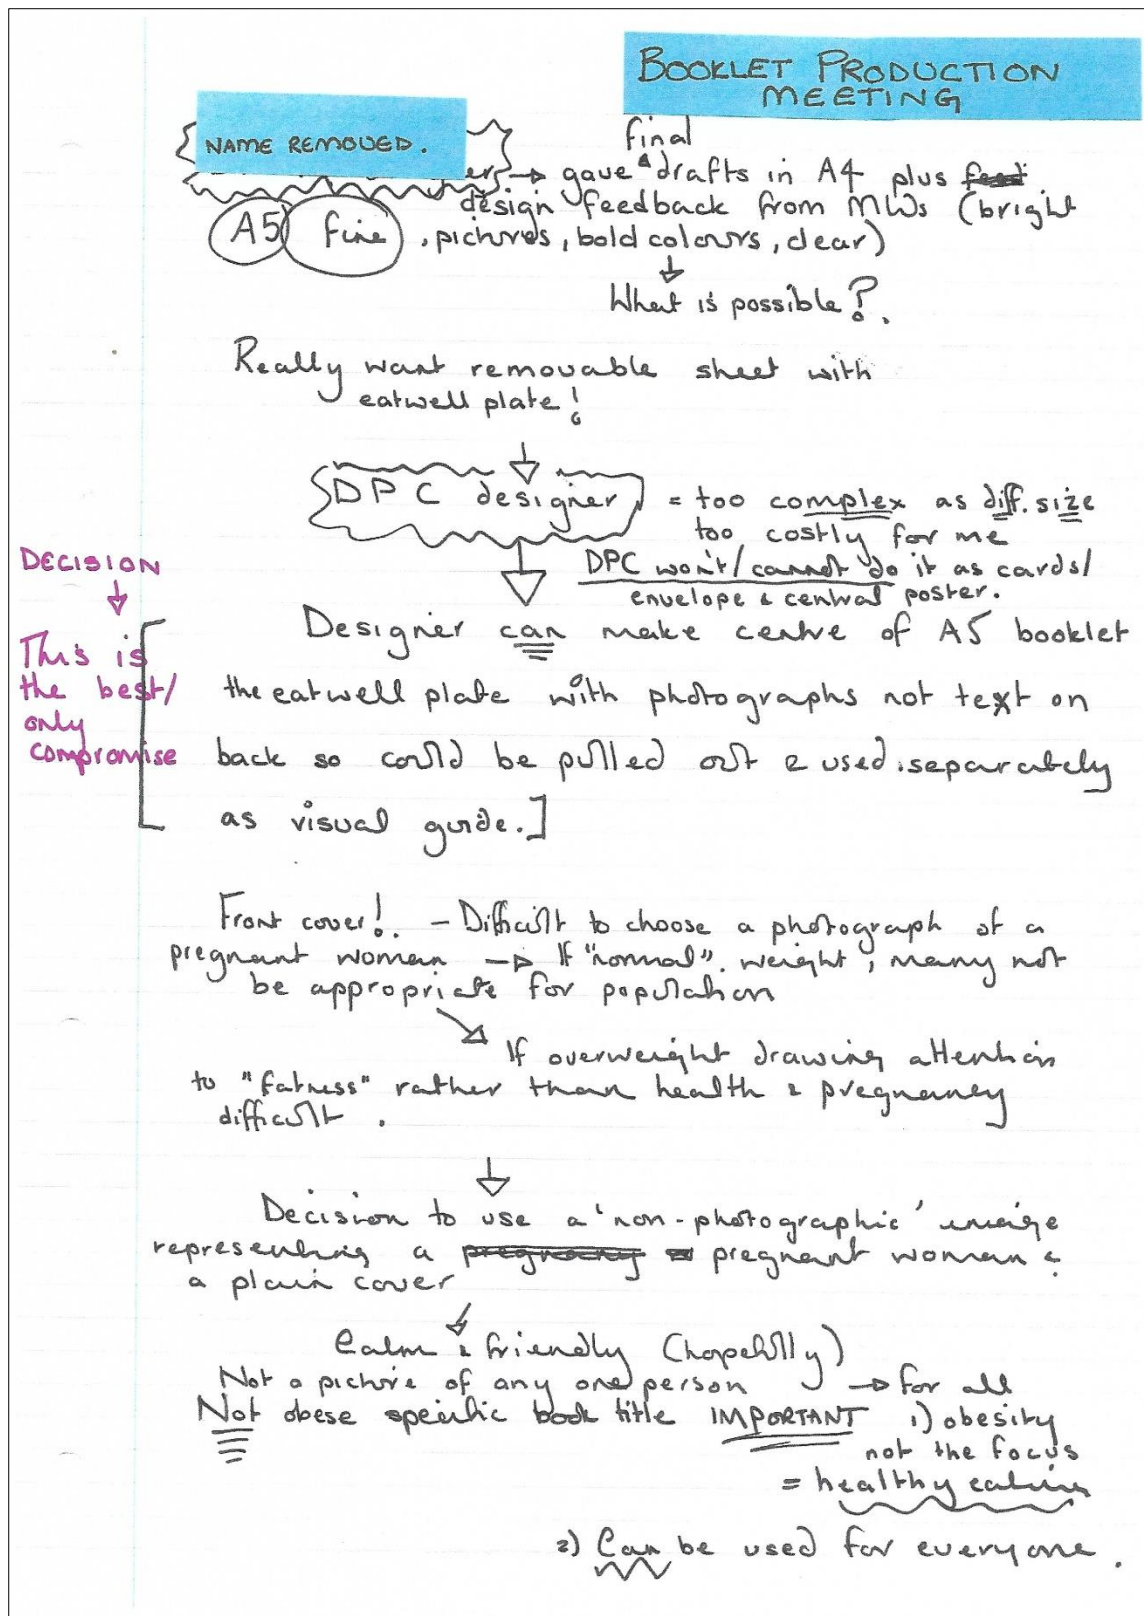 BOOKLET PRODUCTION
MEETING
NAME REMOVED.
final
→ gave drafts in A4 plus
design feedback from MWs (bright
A5 fine, pictures, bold colours, clear)
↓
What is possible?.
Really want removable sheet with
eatwell plate!
↓
DPC designer = too complex as diff. size
too costly for me
DPC won't/cannot do it as cards/
envelope & central poster.
DECISION
↓
This is
the best/
only
compromise
[Designer can make centre of A5 booklet
the eatwell plate with photographs not text on
back so could be pulled out & used separately
as visual guide.]
Front cover!. - Difficult to choose a photograph of a
pregnant woman → If "normal". weight, many not
be appropriate for population
If overweight drawing attention
to "fatness" rather than health & pregnancy
difficult.
↓
Decision to use a 'non-photographic' image
representing a pregnant woman &
a plain cover
Calm & friendly (hopefully)
Not a picture of any one person → for all
Not obese specific book title IMPORTANT 1) obesity
not the focus
= healthy eating
2) Can be used for everyone.